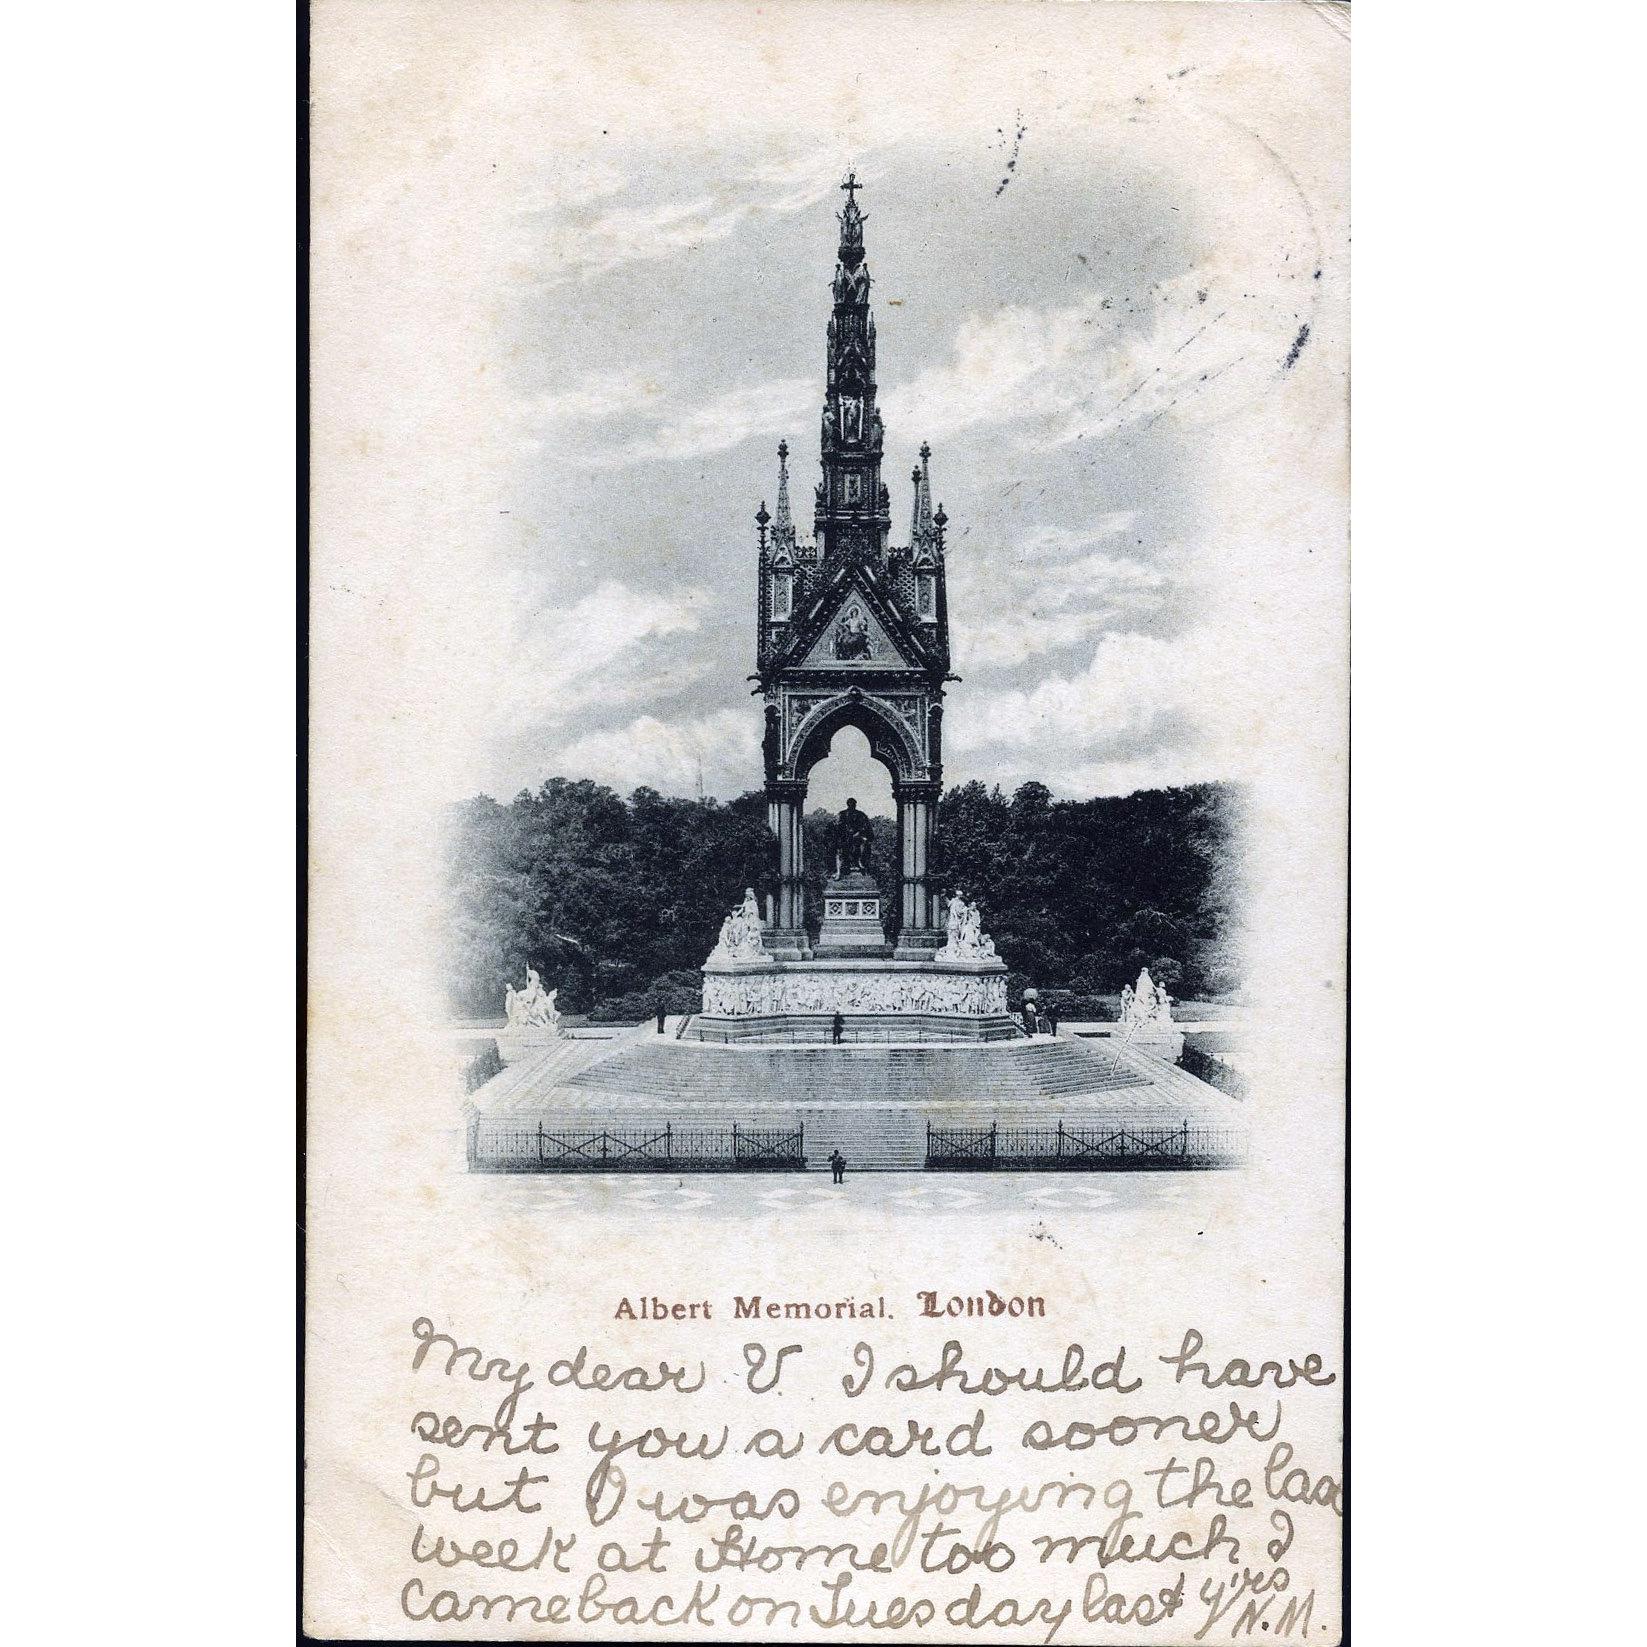 Albert Memorial. London
My dear V. I should have
sent you a card sooner
but I was enjoying the las
week at Home too much I
came back on Tuesday last y'rs
N.M.